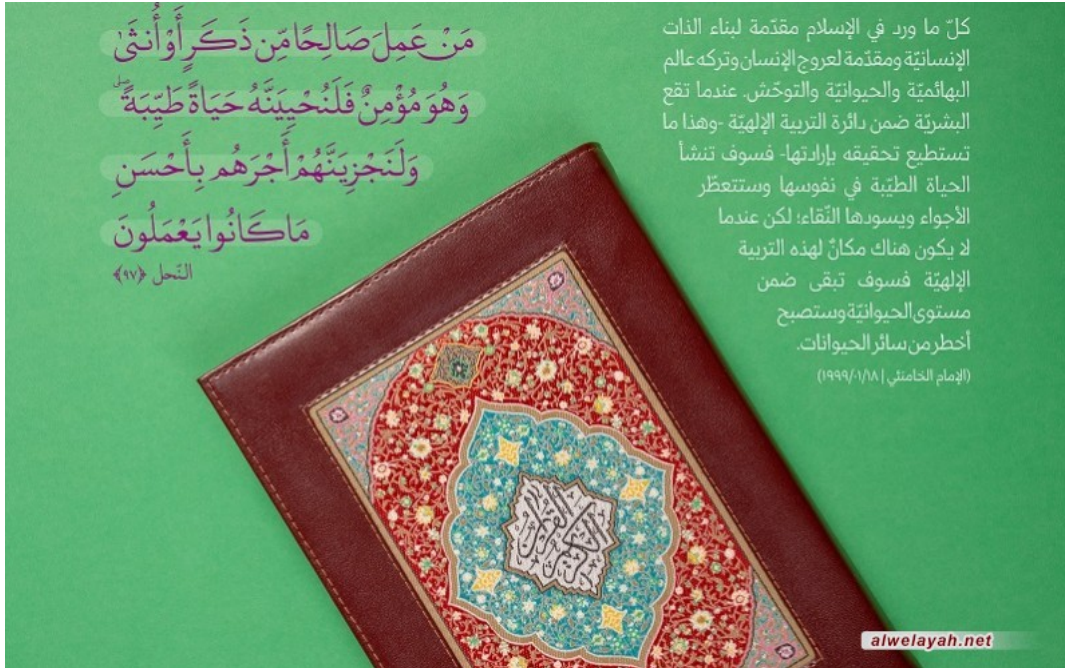 كلّ ما ورد في الإسلام مقدّمة لبناء الذات
الإنسانيّة ومقدّمة لعروج الإنسان وتركه عالم
البهائميّة والحيوانيّة والتوحّش. عندما تقع
البشريّة ضمن دائرة التربية الإلهيّة -وهذا ما
تستطيع تحقيقه بإرادتها- فسوف تنشأ
الحياة الطيّبة في نفوسها وستتعطّر
الأجواء ويسودها النّقاء؛ لكن عندما
لا يكون هناك مكانٌ لهذه التربية
الإلهيّة فسوف تبقى ضمن
مستوى الحيوانيّة وستصبح
أخطر من سائر الحيوانات.
(الإمام الخامنئي | ١٩٩٩/٠١/١٨)
مَنْ عَمِلَ صَالِحًا مِّن ذَكَرٍ أَوْ أُنثَىٰ
وَهُوَ مُؤْمِنٌ فَلَنُحْيِيَنَّهُ حَيَاةً طَيِّبَةً ۖ
وَلَنَجْزِيَنَّهُمْ أَجْرَهُم بِأَحْسَنِ
مَا كَانُوا يَعْمَلُونَ
النّحل ﴿٩٧﴾
القرآن الكريم
alwelayah.net